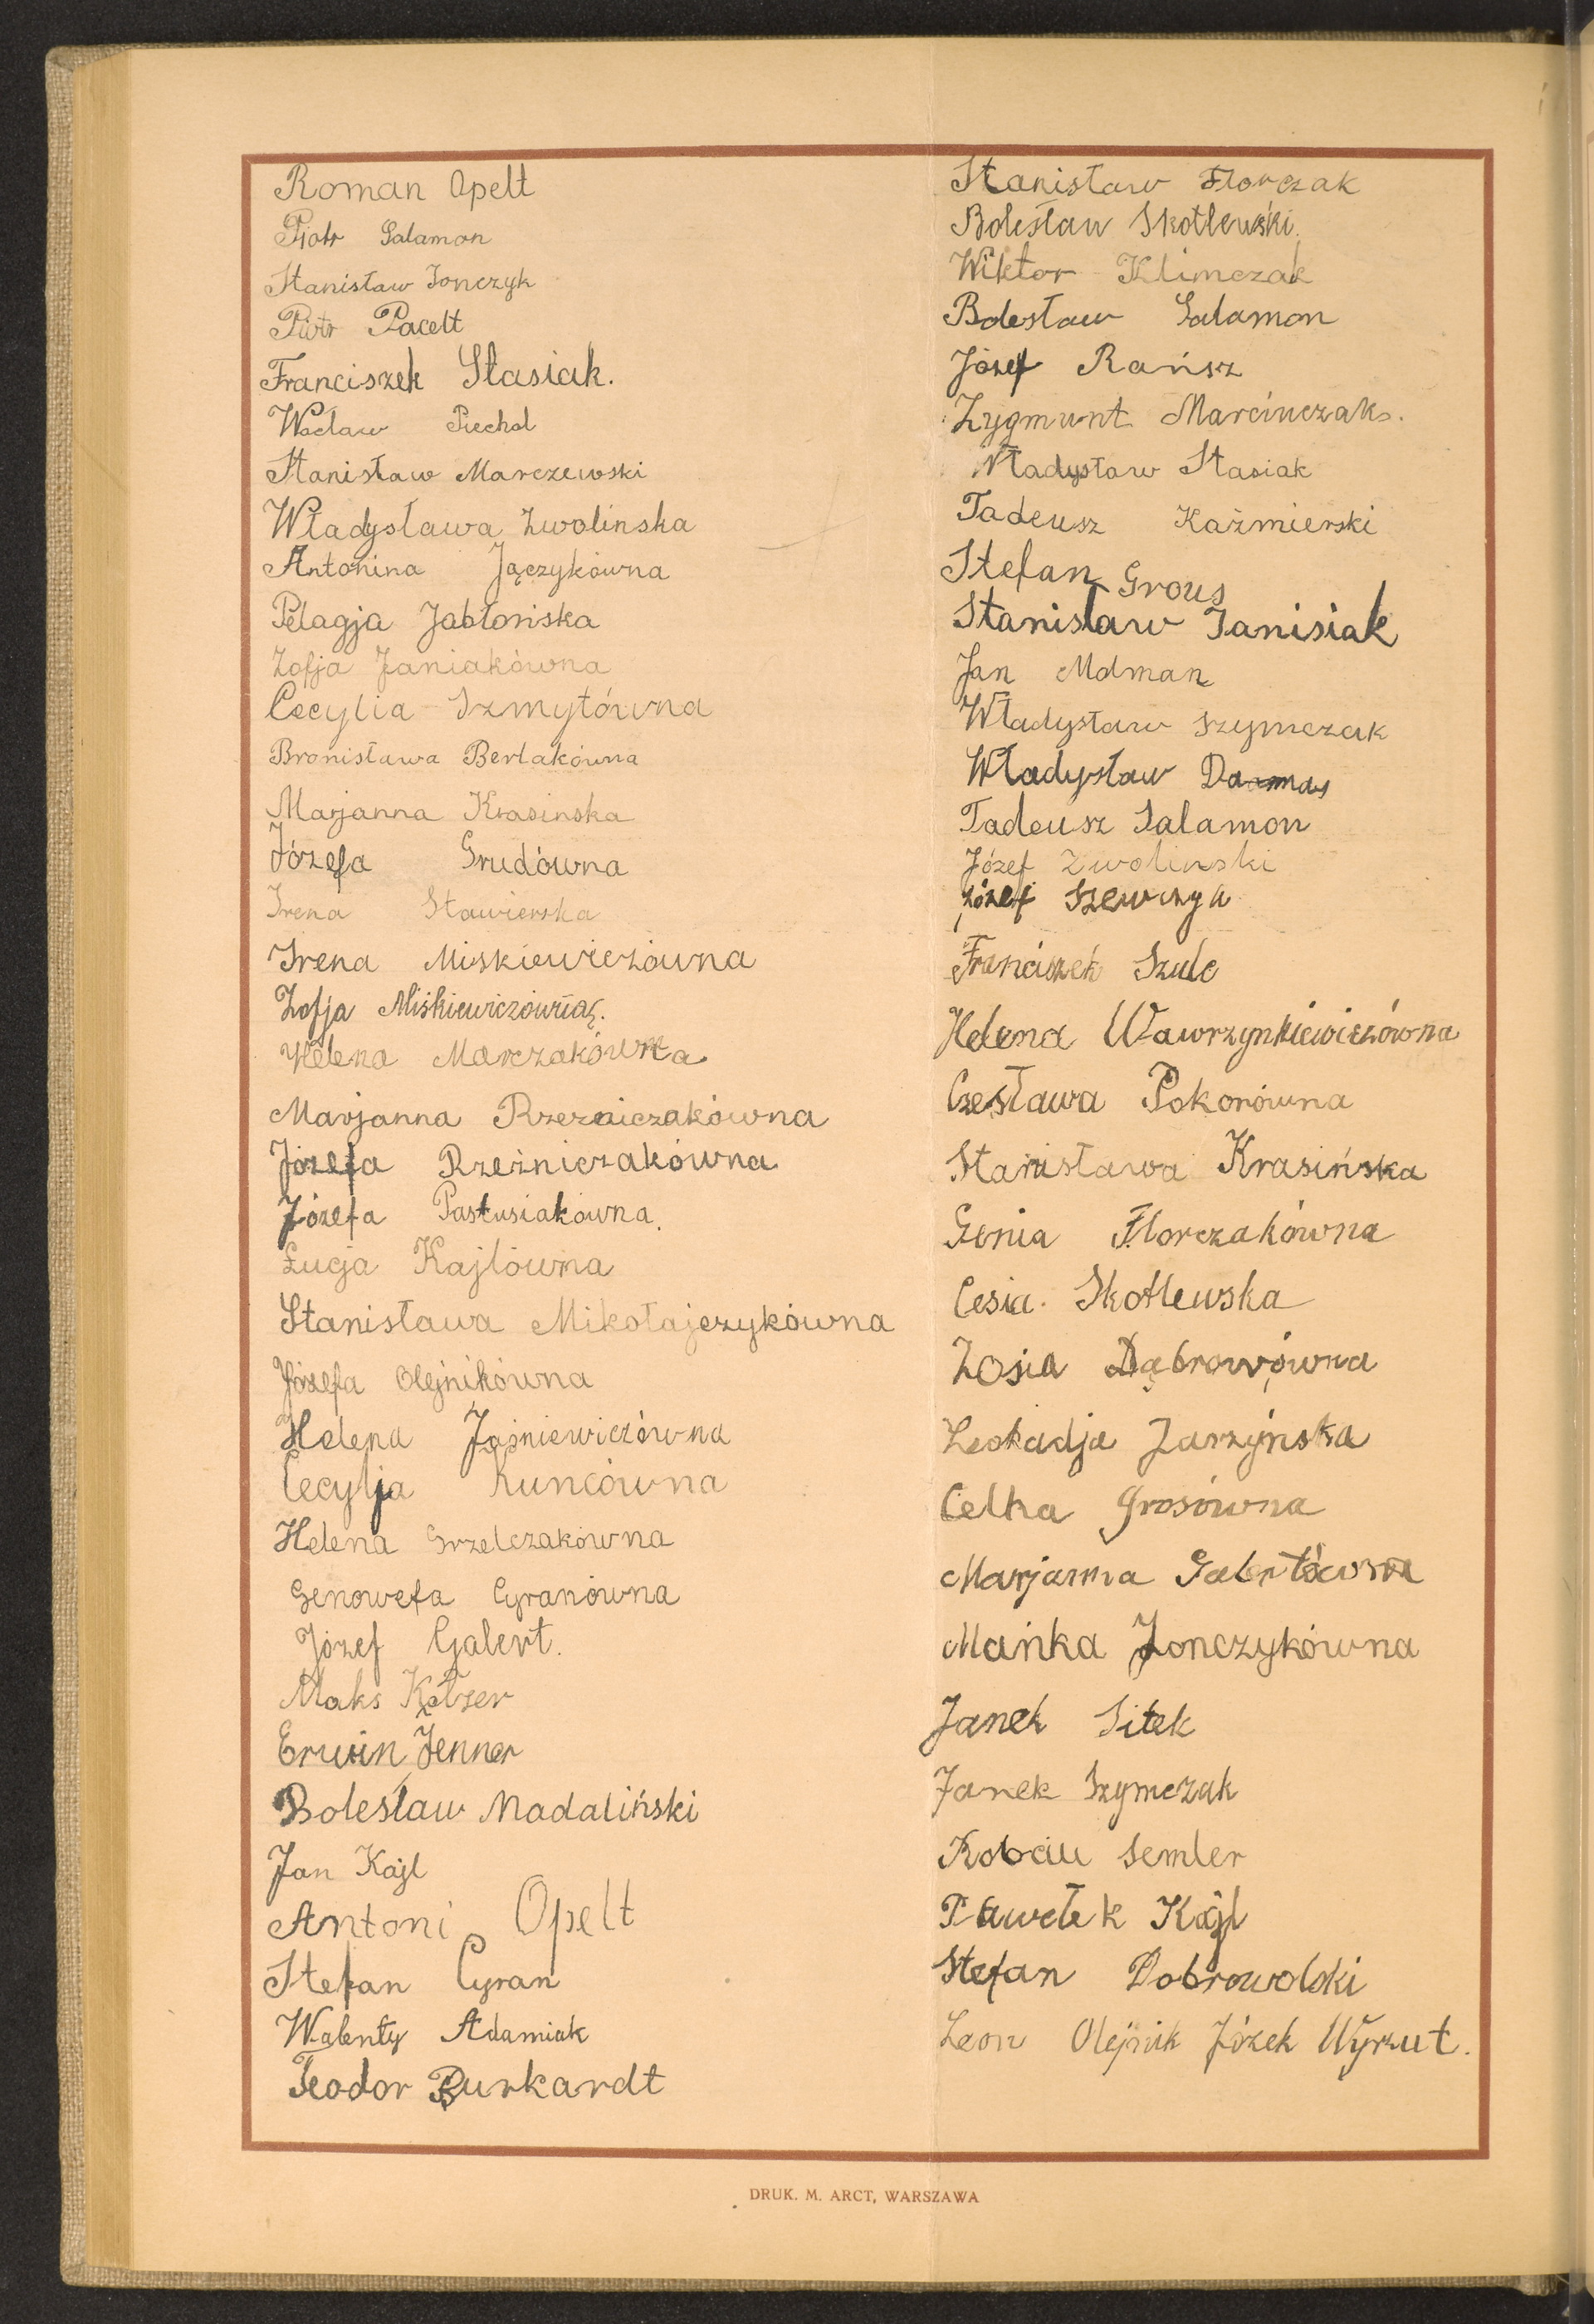 Roman Opelt
Piotr Salamon
Stanisław Jonczyk
Piotr Pacelt
Franciszek Stasiak.
Wacław Piechol
Stanisław Marczewski
Władysława Zwolinska
Antonina Jączykówna
Pelagja Jabłońska
Zofja Janiakówna
Cecylia Szmytówna
Bronisława Berlakówna
Marjanna Krasinska
Józefa Grudówna
Irena Stawierska
Irena Miskiewiczówna
Zofja Miśkiewiczówna
Helena Marczakówna
Marjanna Rzezniczakówna
Józefa Rzeźniczakówna
Józefa Pastusiakówna.
Łucja Kajlówna
Stanisława Mikołajczykówna
Józefa Olejnikówna
Helena Jaśniewiczówna
Cecylja Kuncówna
Helena Grzelczakówna
Genowefa Cyranówna
Józef Galert.
Maks
Erwin Jenner
Bolesław Madaliński
Jan Kajl
Antoni Opelt
Stefan Cyran
Walenty Adamiak
Teodor Burkardt
Stanisław Florczak
Bolesław Skotlewski.
Wiktor Klimczak
Bolesław Salamon
Józef Rańsz
Zygmunt Marcinczak.
Władysław Stasiak
Tadeusz Kaźmierski
Stefan Grous
Stanisław Janisiak
Jan Molman
Władysław Szymczak
Władysław Darmas
Tadeusz Salamon
Józef Zwolinski
Józef Szewczyk
Franciszek Szulc
Helena Wawrzynkiewiczówna
Czesława Pokorówna
Stanisława Krasińska
Genia Florczakówna
Cesia. Skotlewska
Zosia Dąbrowówna
Leokadja Jarzyńska
Celka Grosówna
Marjanna Galertówna
Mańka Jonczykówna
Janek Sitek
Janek Szymczak
Semler
Pawełek Kajl
Stefan Dobrowolski
Leon Olejnik Józek Wyrzut.
DRUK. M. ARCT, WARSZAWA